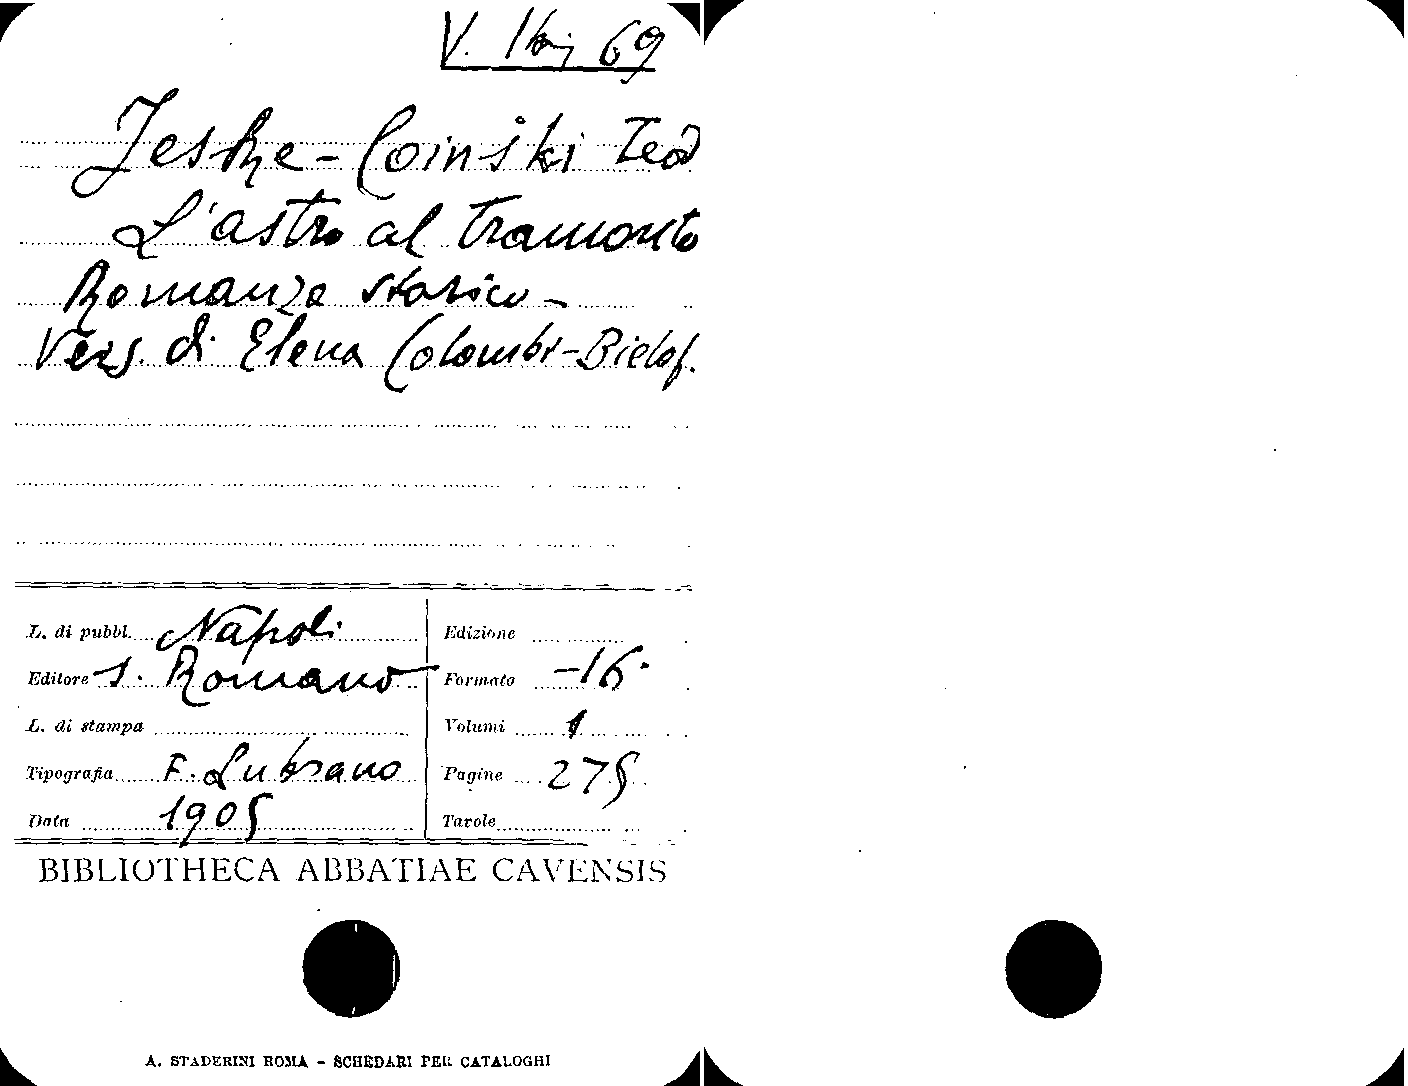 V. 69
Jeske-Coinski Teod
L'astro al tramonto
Romanzo storico -
Vers. di Elena Colombi-Bielof.
L. di pubbl. Napoli
Editore S. Romano
L. di stampa
Tipografia F. Lubrano
Data 1905
Edizione
Formato -16.
Volumi 1
Pagine 275
Tavole
BIBLIOTHECA ABBATIAE CAVENSIS
A. STADERINI ROMA - SCHEDARI PER CATALOGHI